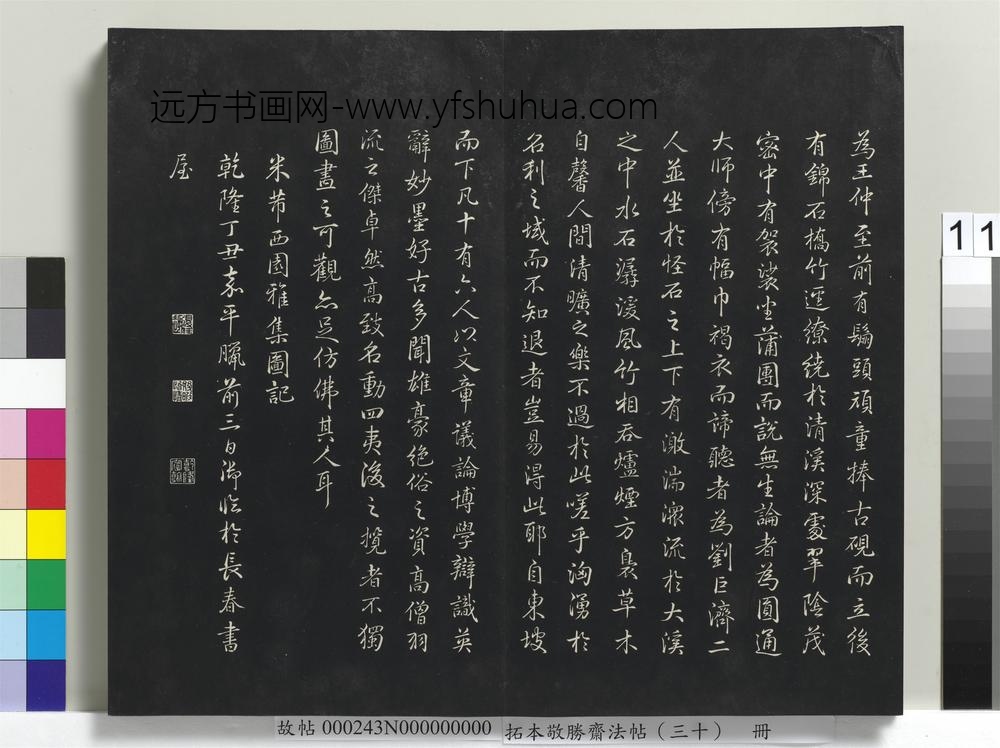 远方书画网-www.yfshuhua.com
為王仲至前有鬅頭頑童捧古硯而立後
有錦石橋竹逕繚繞於清溪深處翠陰茂
密中有袈裟坐蒲團而說無生論者為圓通
大師傍有幅巾褐衣而諦聽者為劉巨濟二
人並坐於怪石之上下有激湍潀流於大溪
之中水石潺湲風竹相吞爐煙方裊草木
自馨人間清曠之樂不過於此嗟乎洶湧於
名利之域而不知退者豈易得此耶自東坡
而下凡十有六人以文章議論博學辯識英
辭妙墨好古多聞雄豪絕俗之資高僧羽
流之傑卓然高致名動四夷後之攬者不獨
圖畫之可觀亦足仿佛其人耳
米芾西園雅集圖記
乾隆丁丑嘉平臘前三日御臨於長春書
屋
11
故帖 000243N000000000 拓本敬勝齋法帖（三十） 冊